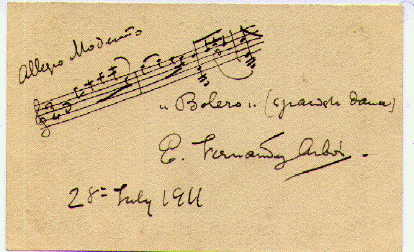 Allegro Moderato
"Bolero" (Spanish dance)
E. Fernandez Arbós.
28= July 1911